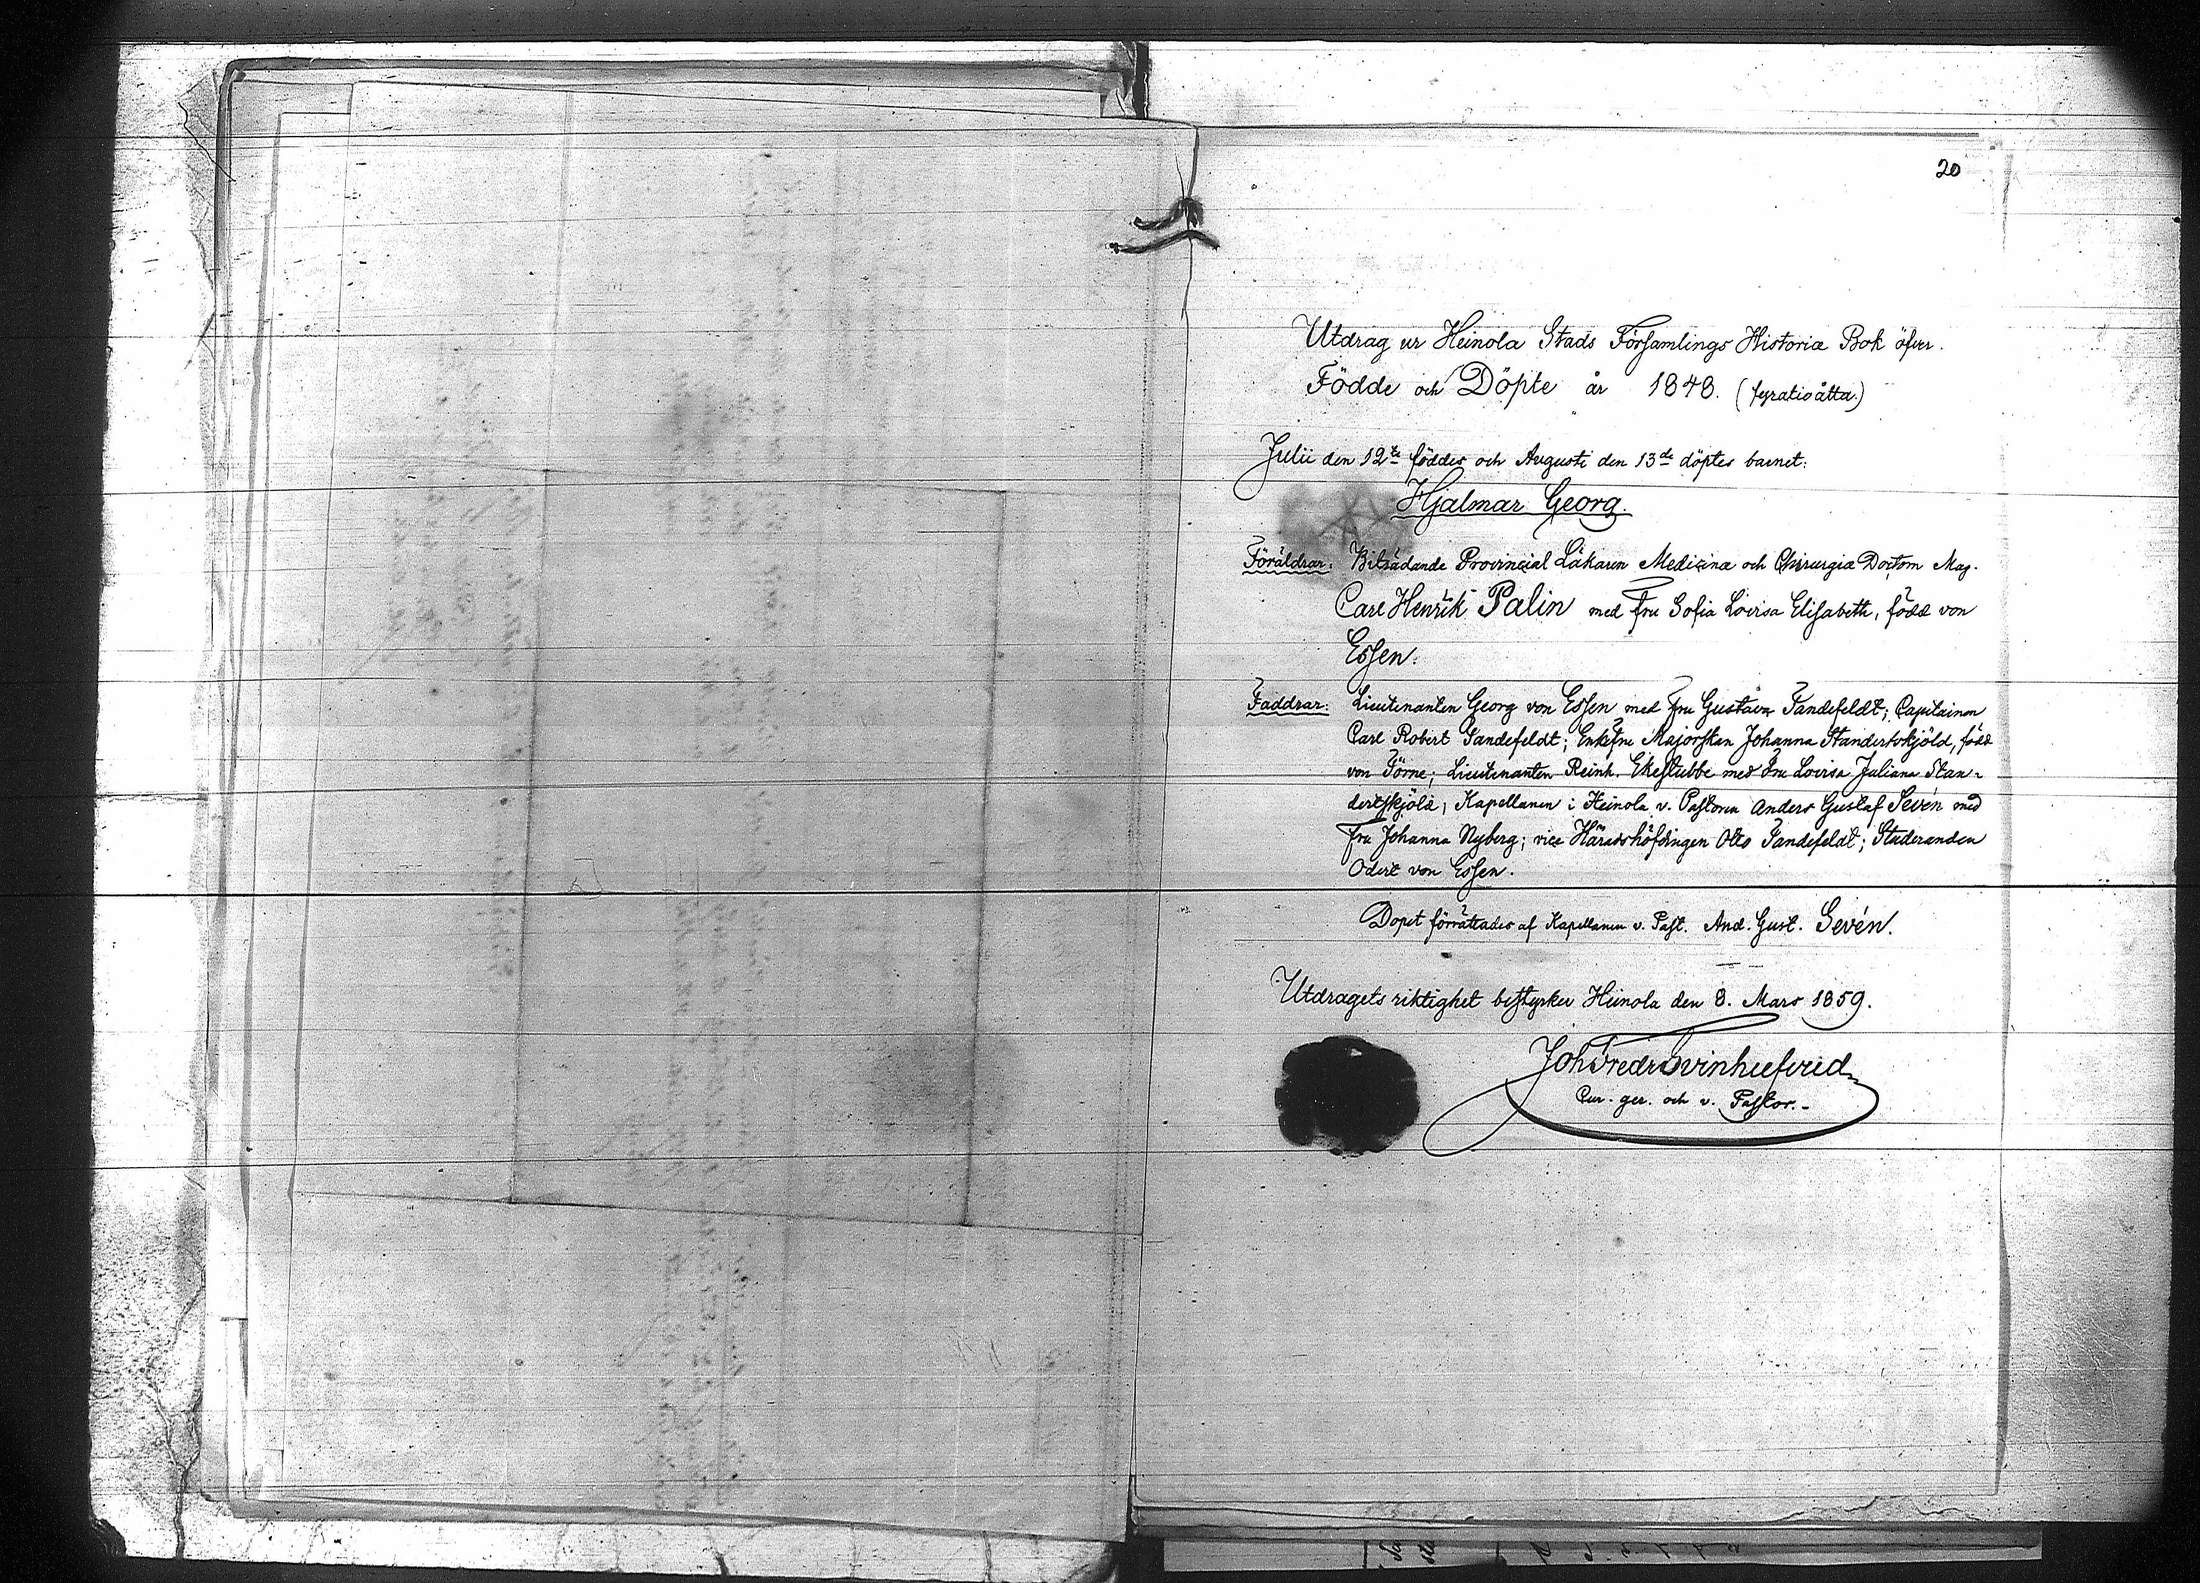 20
Utdrag ur Heinola Stads Församlings Historiæ Bok öfver
Födde och Döpte år 1848. (fyratioåtta.)
Julii den 12te föddes och Augusti den 13de döptes barnet:
Hjalmar Georg.
Föräldrar: Biträdande Provincial Läkaren Medicinæ och Chirurgiæ Doctorn Mag.
Carl Henrik Palin med Fru Sofia Lovisa Elisabeth, född von
Essen.
Faddrar: Lieutenanten Georg von Essen med Fru Gustava Tandefeldt; Capitainen
Carl Robert Tandefeldt; Enkefru Majorskan Johanna Standertskjöld, född
von Törne; Lieutenanten Reinh. Ekestubbe med Fru Lovisa Juliana Stan-
dertskjöld; Kapellanen i Heinola v. Pastorn Anders Gustaf Sevén med
Fru Johanna Nyberg; vice Häradshöfdingen Otto Tandefeldt; Studeranden
Odert von Essen.
Dopet förrättades af Kapellanen v. Past. And. Gust. Sevén.
Utdragets riktighet bestyrker Heinola den 8. Mars 1859.
Joh Fredr Svinhufvud
Cur. ger. och v. Pastor.-